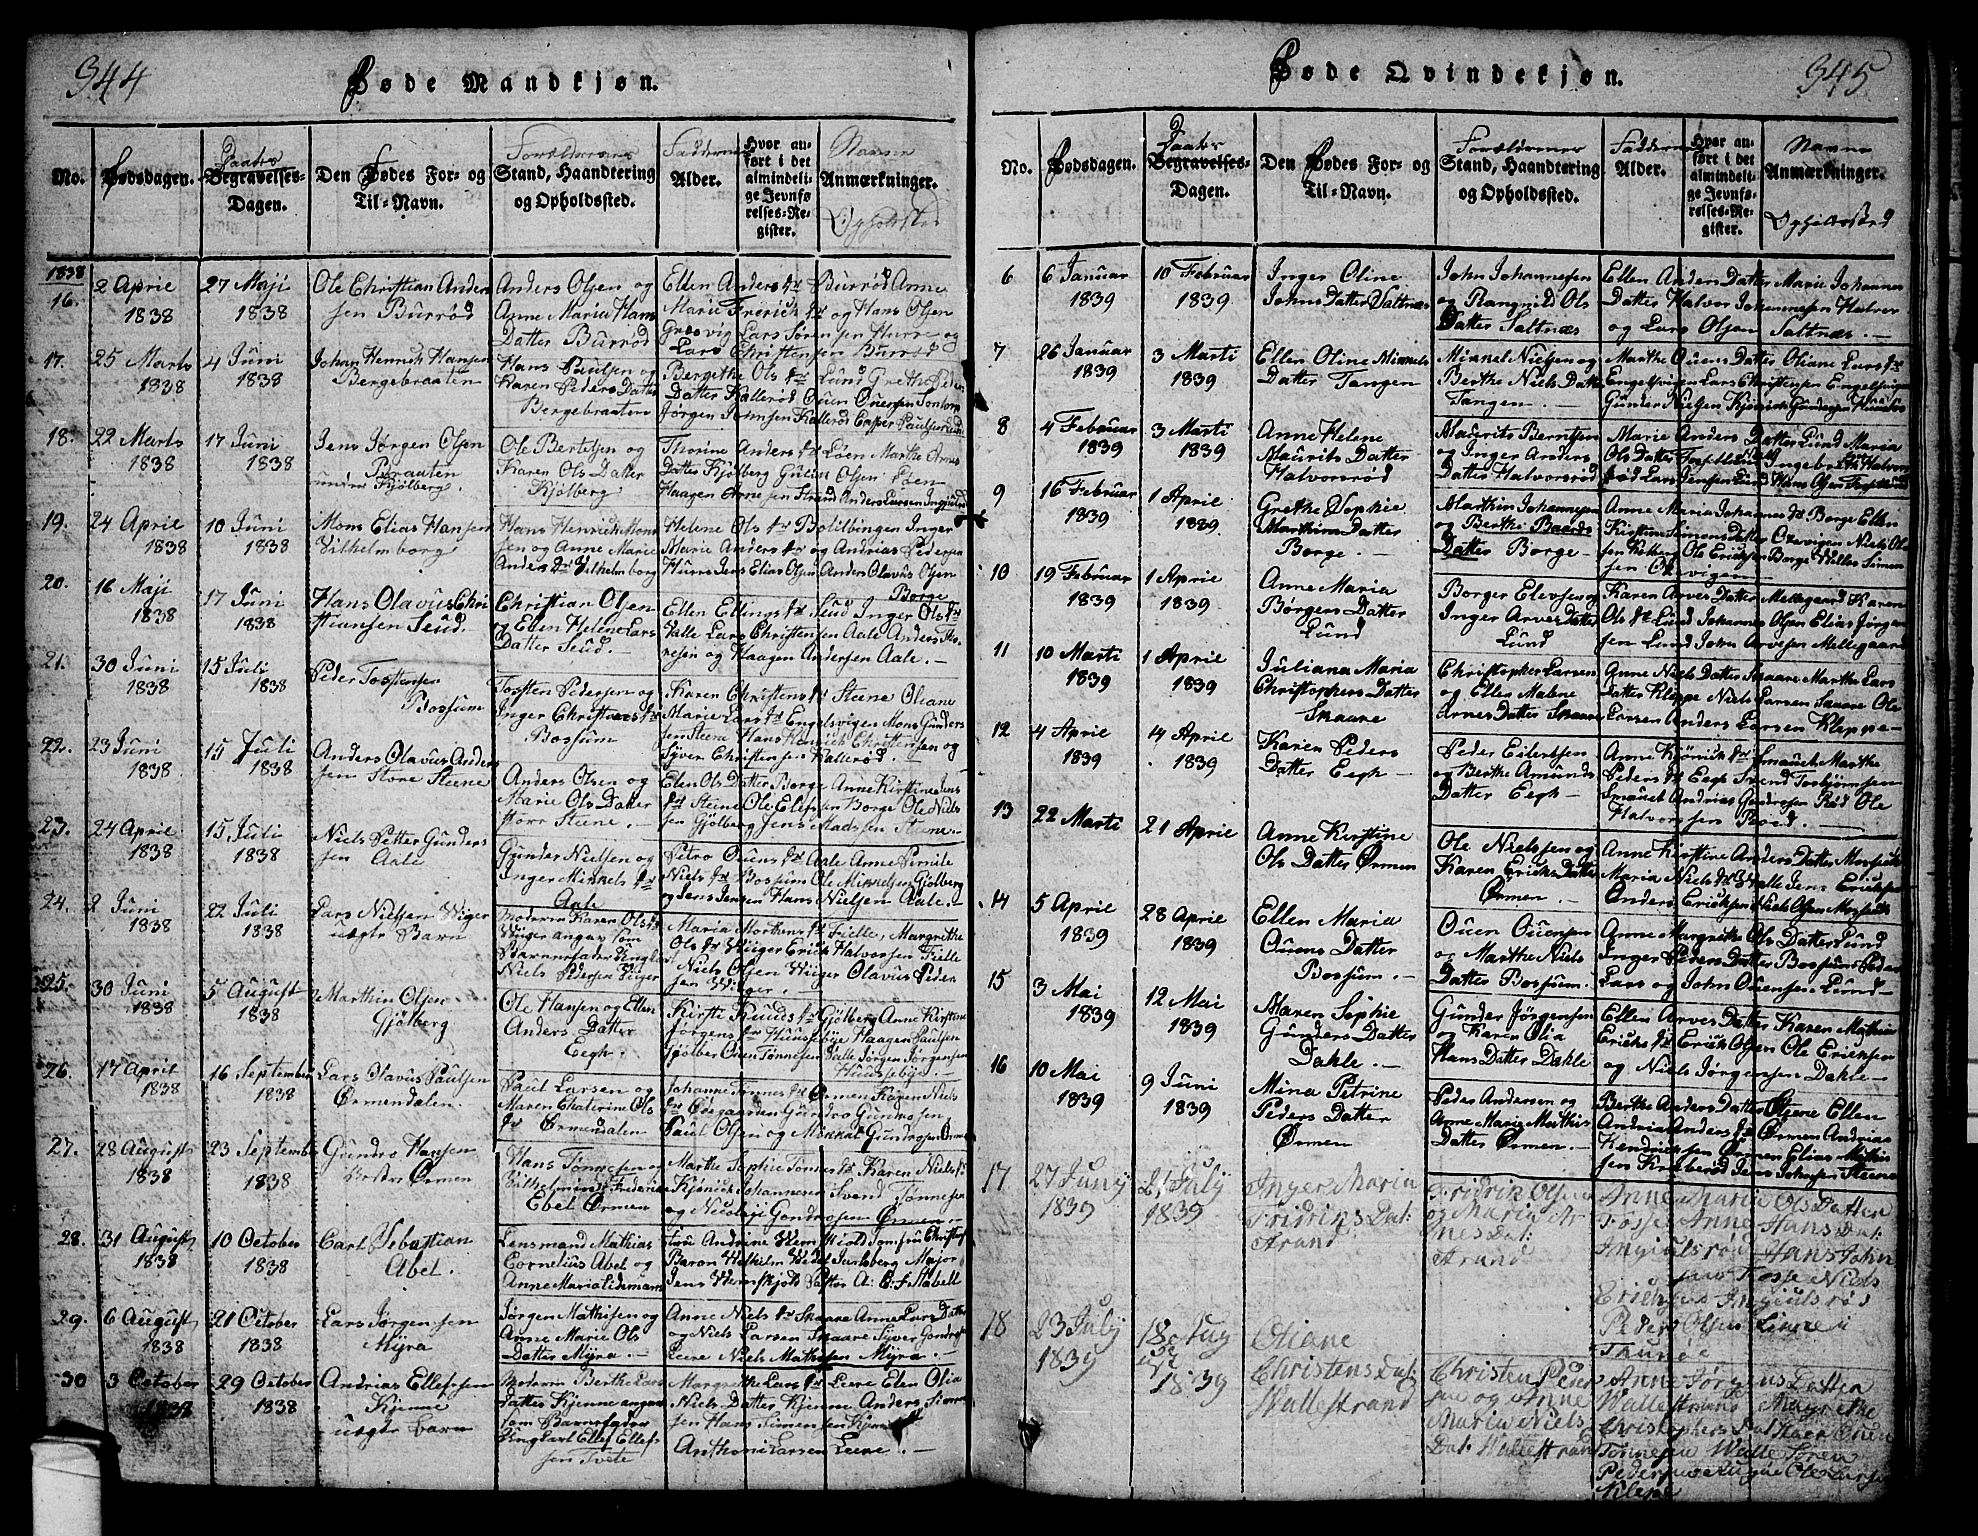 344
Føde Mandkjøn.
No.
Fødsdagen.
Daabs
Begravelses-
Dagen.
Den Fødes For- og
Til-Navn.
Forældrenes
Stand, Haandtering
og Opholdssted.
Faddernes
Alder.
Hvor an-
ført i det
almindeli-
ge Jevnfø
relses-Re-
gister.
Navne
Anmærkninger.
Opholdsted
1838
16.
2 April
1838
27 Maji
1838
Ole Christian Anders
sen Burrød
Anders Olsen og
Anne Maria Hans
Datter Burrød
Ellen Anders dr Burrød Anne
Marie Frerich dr og Hans Olsen
Græsvig Lars Søren sen Hurre og
Lars Christensen Burrød
17.
25 Marts
1838
4 Juni
1838
Johan Henrich Hansen
Bergebraaten
Hans Paulsen og
Karen Peders Datter
Bergebraaten
Bergethe Ols dr Lund Grethe Peders
Datter Kallerød Ouen Ouensen
Jørgen Jensen Kallerød Casper Paulsen Lund
18.
22 Marts
1838
17 Juni
1838
Jens Jørgen Olsen
Braaten
under Kjølberg.
Ole Bertelsen og
Karen Ols Datter
Kjølberg
Thorine Anders dr Løen Marthe Arnes
Datter Kjølberg Gulin Olsen Løen
Haagen Arnesen Strand Anders Larsen
19.
24 April
1838
10 Juni
1838
Mons Elias Hansen
Vilhelmborg
Hans Henrich Mons
sen og Anne Marie
Anders Dr Vilhelmborg
Helene Ols dr Inger
Marie Anders dr og Andrias Pedersen
Hurre Jens Elias Olsen Anders Olavus Olsen
Borge
20.
16 Maji
1838
17 Juni
1838
Hans Olavus Chri
stiansen Seud.
Christian Olsen
og Ellen Helene Lars
Datter Seud.
Ellen Ellings dr Seud Inger Ols dr
Valle Lars Christensen Aale Anders
resen og Haagen Andersen Aale. —
21.
30 Juni
1838
15 Juli
1838
Peder Tostensen
Bossum
Tosten Pedersen og
Inger Christvers dr
Bossum
Karen Christens dr Steene Oliane
Marie Lars dr Engelsvigen Mons Gunders
sen Steene Hans Henrich Christensen og
Syver Christensen Kallerød.
22.
23 Juni
1838
15 Juli
1838
Anders Olavus Anders
sen Store Steene
Anders Olsen og
Marie Ols Datter
store Steene. —
Elen Ols Datter Borge Anne Kirstine Jens
dr Steene Ole Elefsen Borge Ole Niels
sen Gjølberg Jens Madssen Steene. —
23.
24 April
1838
15 Juli
1838
Niels Petter Gunders
sen Aale
Gunder Nielsen og
Inger Mikkels dr
Aale
Petro Ouens dr Aale Anne Pernille
Niels dr Bossum Ole Mikkelsen Gjølberg
og Jens Jensen Hans Nielsen Aale.
24.
2 Juni
1838
22 Juli
1838
Lars Nielsen Wiger
uægte Barn
Moderen Karen Ols dr
Wiger angav som
Barnefader Ungk.
Niels Pedersen Wiger
Maria Mortens dr Fielle, Margrethe
Ols dr Wiiger Erich Halvorssen Fielle
Niels Olsen Wiiger Olavus Peder
sen Wiger. —
25.
30 Juni
1838
5 August
1838
Marthin Olsen
Gjølberg
Ole Hansen og Ellen
Anders Datter
Eegh.
Kirsti Knuds dr Gjølberg Anne Kirstine
Jørgens dr Huusebye Haagen Paulsen
Gjølber Ouen Tønnesen Valle Jørgen Jørgensen
Huusebye. —
26.
17 April
1838
16 September
1838
Lars Olavus Paulsen
Ørmendalen.
Paul Larsen og
Maren Chaterine Ols
dr Ørmendalen
Johanne Tønnes dr Ørmen Karen Niels
dr Ødegaarden Gundro Gundrosen
Paul Olsen og Mikkal Gundrosen Ørmen
27.
28 August
1838
23 Septembr
1838
Gundro Hansen
Ørmen
Hans Tønnesen og
Vilhelmine Frederica
Ebel Ørmen
Marthe Sophie Tønnes dr Karen Niels dr
Kjønich Johannesen Svend Tønnesen
og Nicolaj Gondrosen Ørmen.
28.
31 August
1838
10 October
1838
Carl Sebastian
Abel.
Lensmand Mathias
Cornelius Abel og
Anne Maria Lidemark
Fru Andrine
Baron Vilhelm Wedel Jarlsberg Major
Jens
29.
6 August
1838
21 October
1838
Lars Jørgensen
Myra
Jørgen Mathisen og
Anne Marie Ols
Datter Myra.
Anne Niels dr Skaare Anne Lars Datter
og Niels Larsen Skaare Syver Gundro
Leere Niels Mathissen Myra. —
30
3 October
1838
29 October
1838
Andrias Ellefssen
Kjenne
uægte barn
Moderen Berthe Lars
Datter Kjenne angav
som Barnefader
Ungkarl Ellef Ellefs
sen Tvete
Margrethe Lars dr Leere Elen Olia
Niels Datter Kjenne Anders
sen Hans Simensen Kjenne
Anthoni Larsen Leere. —
Føde Qvindekjøn.
345
No.
Fødsdagen.
Daabs
Begravelses-
Dagen.
Den Fødes For- og
Til-Navn.
Forældrenes
Stand, Haandtering
og Opholdssted.
Faddernes
Alder.
Hvor an-
ført i det
almindeli-
ge Jevnfø-
relses-Re-
gister.
Navne
Anmærkninger.
Opholdsted
6
6 Januar
1839
10 Februar
1839
Inger Oline
Johns Datter Saltnæs
John Johannesen
og Rangnild Ols
Datter Saltnæs
Ellen Anders Datter Marie Johannes
Datter Halvor Johannesen Halvor
og Lars Olsen Saltnæs. —
7
26 Januar
1839
3 Marti
1839
Ellen Oline Mikkels
Datter Tangen
Mikkel Nielsen og
Berthe Niels Datter
Tangen. —
Marthe Ouens Datter Oliane Lars dr
Engelsvigen Lars Christensen Engelsvigen
Gunder Nielsen Kjønich
8
4 Februar
1839
3 Marti
1839
Anne Helene
Maurits Datter
Halvorsrød
Mauerits Berntsen
og Inger Anders
Datter Halvorsrød
Marie Anders Datter Lund Maria
Ols Datter Ingebreth Halvors
rød Lars Jensen Lund Hans Olsen
9
16 Februar
1839
1 April
1839
Grethe Sophie
Marthins Datter
Borge. —
Marthin Johannesen
og Berthe Baards
Datter Borge —
Anne Maria Johannes dr Borge Ellen
Kirstine Simons Datter Oxevigen Niels Ol
sen Kilberg Ols Ericksen Borge Simen
sen Oxevigen
10
19 Februar
1839
1 April
1839
Anne Maria
Børgers Datter
Lund
Borger Elevsen og
Inger Arves Datter
Lund
Karen Arves Datter Mellegaard Karen
Ols dr Lund Johannes Olsen Elias Jørgen
sen Lund John Arvesen Mellegaard
11
10 Marti
1839
1 April
1839
Juliana Maria
Christophers Datter
Skaare
Christopher Larsen
og Ellen Malene
Arnes Datter Skaare
Anne Niels Datter Skaare Marthe Lars
Datter Kleppe Niels Larsen Skaare Ole
Larsen Anders Larsen Kleppe —
12
4 April
1839
14 April
1839
Karen Peders
Datter Eegh —
Peder Eilertsen
og Berthe Amunds
Datter Eegh —
Anne Kjønich dr Smauet Marthe
Peders dr Eegh Svend Torbjørnsen
Smauet Andrias Gundresen Rød Ole
Halvorssen Roed. —
13
22 Marti
21 April
Anne Kirstine
Ols Datter Ørmen
Ole Nielssen og
Karen Ericks Datter
Ørmen. —
Anne Kirstine Anders Datter Mossevik
Maria Niels dr Valle Jens Ericksen
Anders Ericksen Niels Olsen Mossevik
14
5 April
1839
28 April
1839
Ellen Maria
Ouens Datter
Bossum. —
Ouen Ouensen
og Marthe Niels
Datter Bossum.
Anne Margrethe Ols Datter Lund
Inger Peders Datter Bossum Peder
Lars og John Ouensen Lund —
15
3 Mai
1839
12 Mai
1839
Maren Sophie
Gunders Datter
Dahle.
Gunder Jørgensen
og Karen Olia
Hans Datter Dahle
Ellen Arves Datter Karen Mathia
Ericks dr Erick Olsen Ole Ericksen
og Niels Jørgensen Dahle —
16
10 Mai
1839
9 Juni
1839
Mina Petrine
Peders Datter
Ørmen
Peder Andersen og
Anne Maria Mathis
Datter Ørmen.
Berthe Anders Datter Stene Ellen
Andria Anders dr Ørmen Andrias
Hendrichsen Ørmen Elias Mathis
sen Kraberød Jens Johnsen Steene
17
27 Juny
1839
21 July
1839
Inger Maria
Fridriks Dat:
Strand
Fridrik Olsen
og Maria Ar
nes Dat:
Strand
Anne Maria Ols Datter
Fosse Anne Hans Dat:
Ingjulsrød Hans John
sen Fosse Niels
Ericksen Ingjulsrød
Peder Olsen Leere i
Thune
18
23 July
1839
18de Aug
1839
Oliane
Christens Dat:
Wallestrand
Christen Peder
sen og Anne
Maria Niels
Dat: Wallestrand
Anne Jørgens Datter
Wallestrand Magrethe
Christophers Dat: Ouen
Tønnesen Walle Søren
Pedersen
Klepe